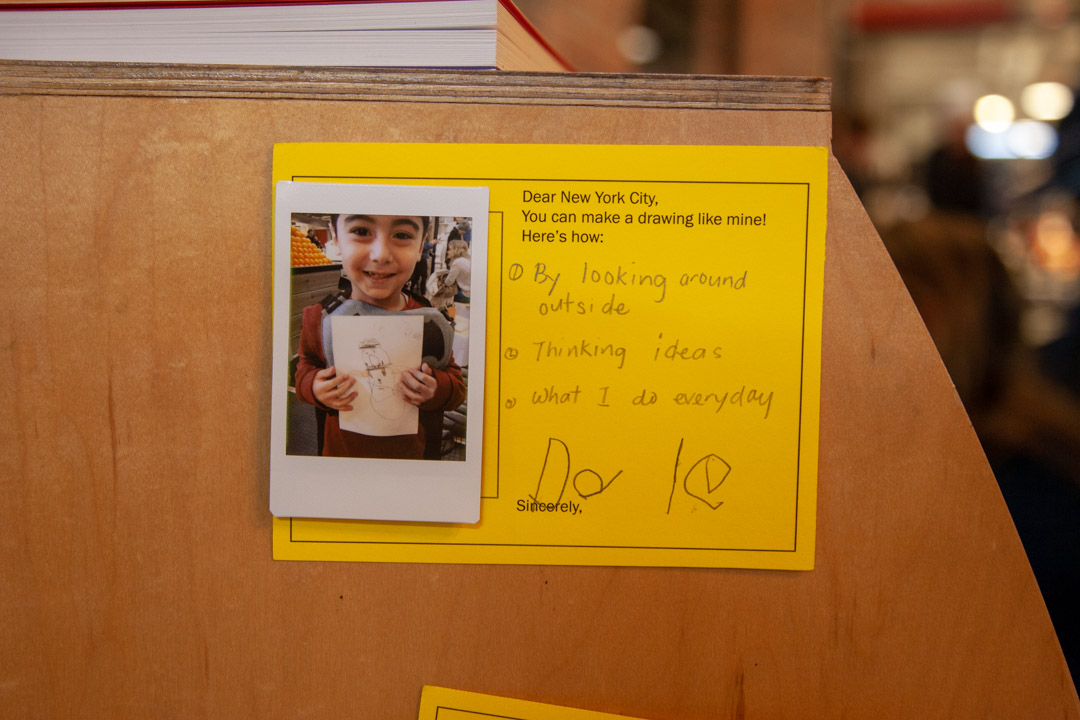 Dear New York City,
You can make a drawing like mine!
Here's how:
① By looking around
outside
② Thinking ideas
③ What I do everyday
Sincerely,